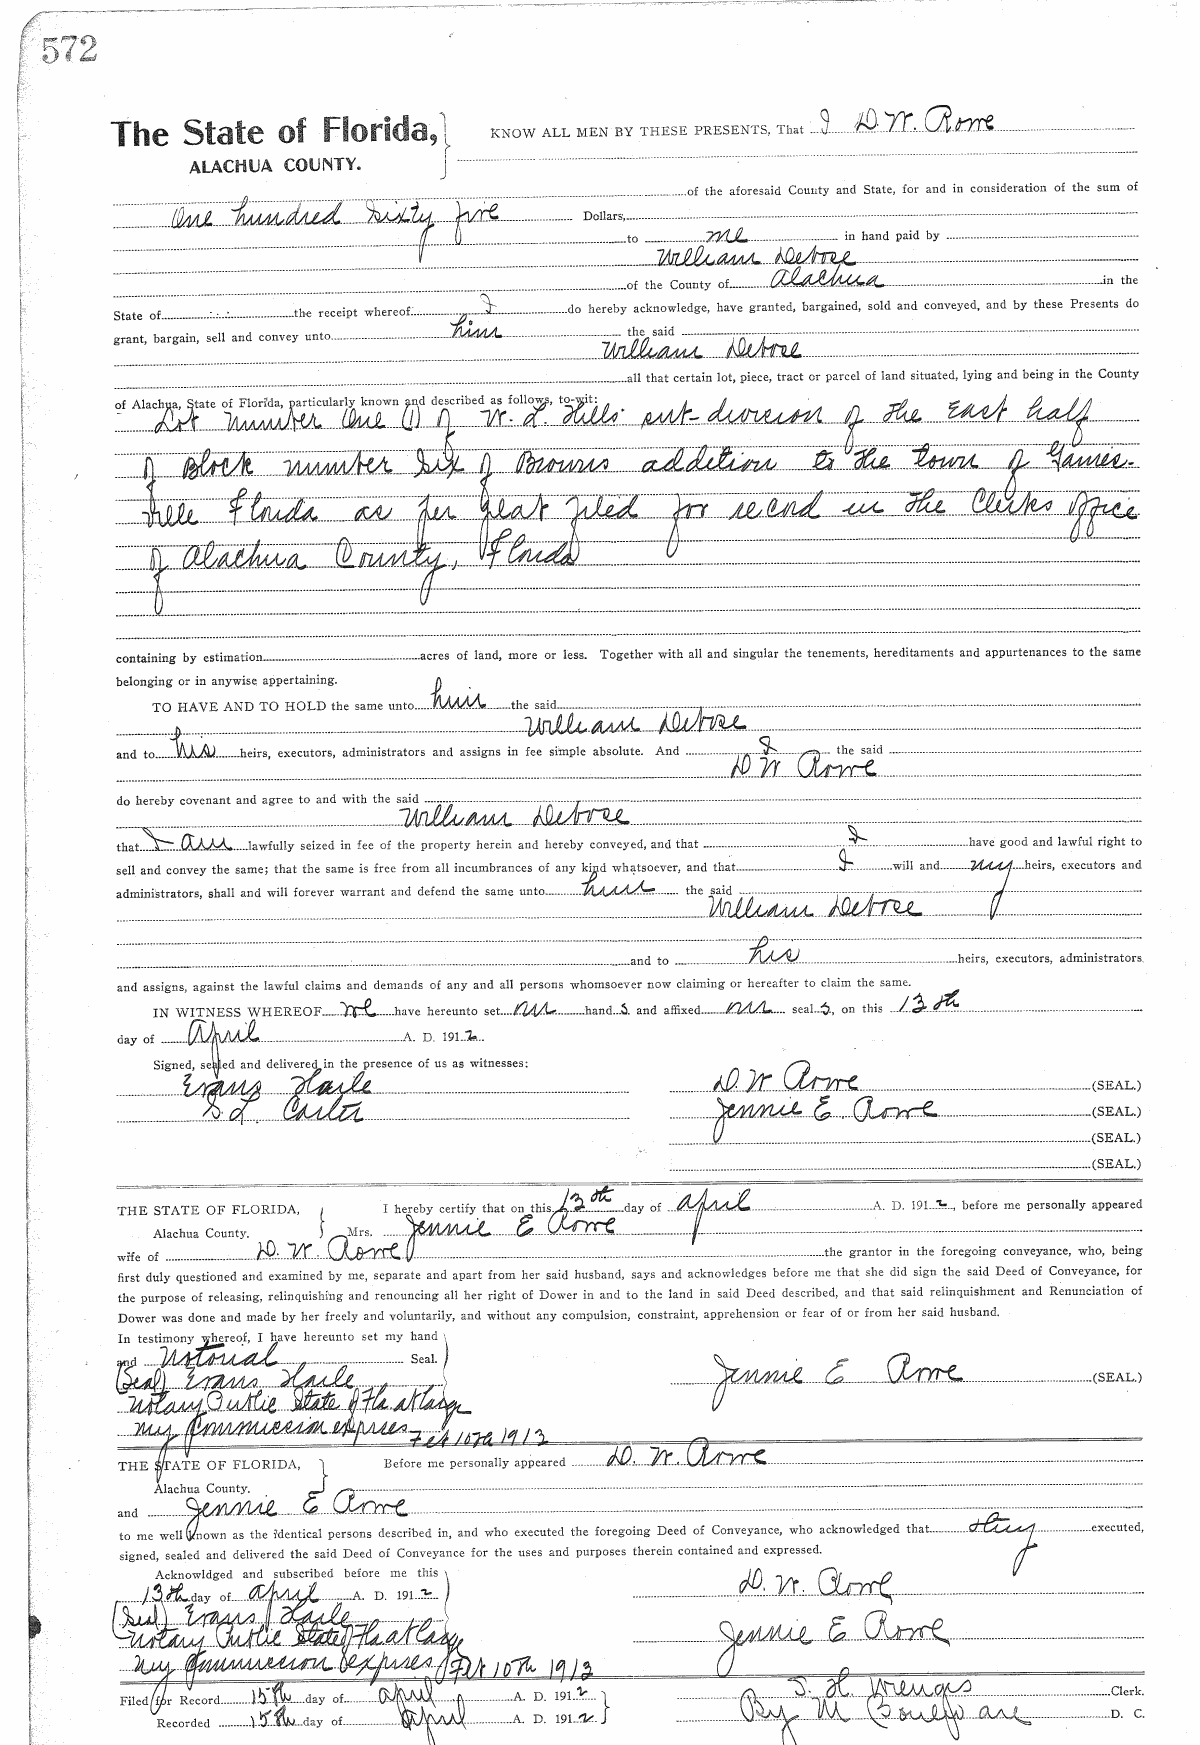 572
The State of Florida, KNOW ALL MEN BY THESE PRESENTS, That I D. W. Rowe
ALACHUA COUNTY.
of the aforesaid County and State, for and in consideration of the sum of
One hundred Sixty five Dollars,
to me in hand paid by
William Debose
of the County of Alachua in the
State of the receipt whereof I do hereby acknowledge, have granted, bargained, sold and conveyed, and by these Presents do
grant, bargain, sell and convey unto him the said
William Debose
all that certain lot, piece, tract or parcel of land situated, lying and being in the County
of Alachua, State of Florida, particularly known and described as follows, to-wit:
Lot Number One (1) of W. L. Hills sub-division of the East half
of Block number Six of Browns addition to the town of Gaines-
ville Florida as per plat filed for record in the Clerks office
of Alachua County, Florida
containing by estimation acres of land, more or less. Together with all and singular the tenements, hereditaments and appurtenances to the same
belonging or in anywise appertaining.
TO HAVE AND TO HOLD the same unto him the said
William Debose
and to his heirs, executors, administrators and assigns in fee simple absolute. And I the said
D W Rowe
do hereby covenant and agree to and with the said
William Debose
that I am lawfully seized in fee of the property herein and hereby conveyed, and that I have good and lawful right to
sell and convey the same; that the same is free from all incumbrances of any kind whatsoever, and that I will and my heirs, executors and
administrators, shall and will forever warrant and defend the same unto him the said
William Debose
and to his heirs, executors, administrators
and assigns, against the lawful claims and demands of any and all persons whomsoever now claiming or hereafter to claim the same.
IN WITNESS WHEREOF we have hereunto set our hand s and affixed our seal s, on this 13th
day of April A. D. 1912
Signed, sealed and delivered in the presence of us as witnesses:
Evans Haile D. W Rowe (SEAL.)
S. L. Carter Jennie E. Rowe (SEAL.)
(SEAL.)
(SEAL.)
THE STATE OF FLORIDA, I hereby certify that on this 13th day of April A. D. 1912, before me personally appeared
Alachua County. Mrs. Jennie E Rowe
wife of D. W. Rowe the grantor in the foregoing conveyance, who, being
first duly questioned and examined by me, separate and apart from her said husband, says and acknowledges before me that she did sign the said Deed of Conveyance, for
the purpose of releasing, relinquishing and renouncing all her right of Dower in and to the land in said Deed described, and that said relinquishment and Renunciation of
Dower was done and made by her freely and voluntarily, and without any compulsion, constraint, apprehension or fear of or from her said husband.
In testimony whereof, I have hereunto set my hand
and Notorial Seal.
(Seal) Evans Haile Jennie E Rowe (SEAL.)
Notary Public State of Fla at Large
My Commission expires Feb 10th 1913
THE STATE OF FLORIDA, Before me personally appeared D. W. Rowe
Alachua County.
and Jennie E Rowe
to me well known as the identical persons described in, and who executed the foregoing Deed of Conveyance, who acknowledged that they executed,
signed, sealed and delivered the said Deed of Conveyance for the uses and purposes therein contained and expressed.
Acknowldged and subscribed before me this
13th day of April A. D. 1912 D. W. Rowe
(Seal) Evans Haile
Notary Public State of Fla at Large Jennie E Rowe
My Commission expires Feb 10th 1913
Filed for Record 15th day of April A. D. 1912 S. H. Wienges Clerk.
Recorded 15th day of April A. D. 1912 By M D. C.